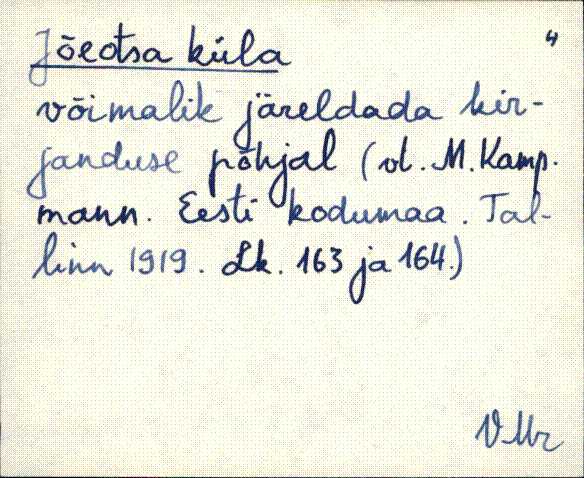 4
Jõeotsa küla
võimalik järeldada kir-
janduse põhjal (vt. M. Kamp-
mann. Eesti kodumaa. Tal-
linn 1919. Lk. 163 ja 164.)
VMr